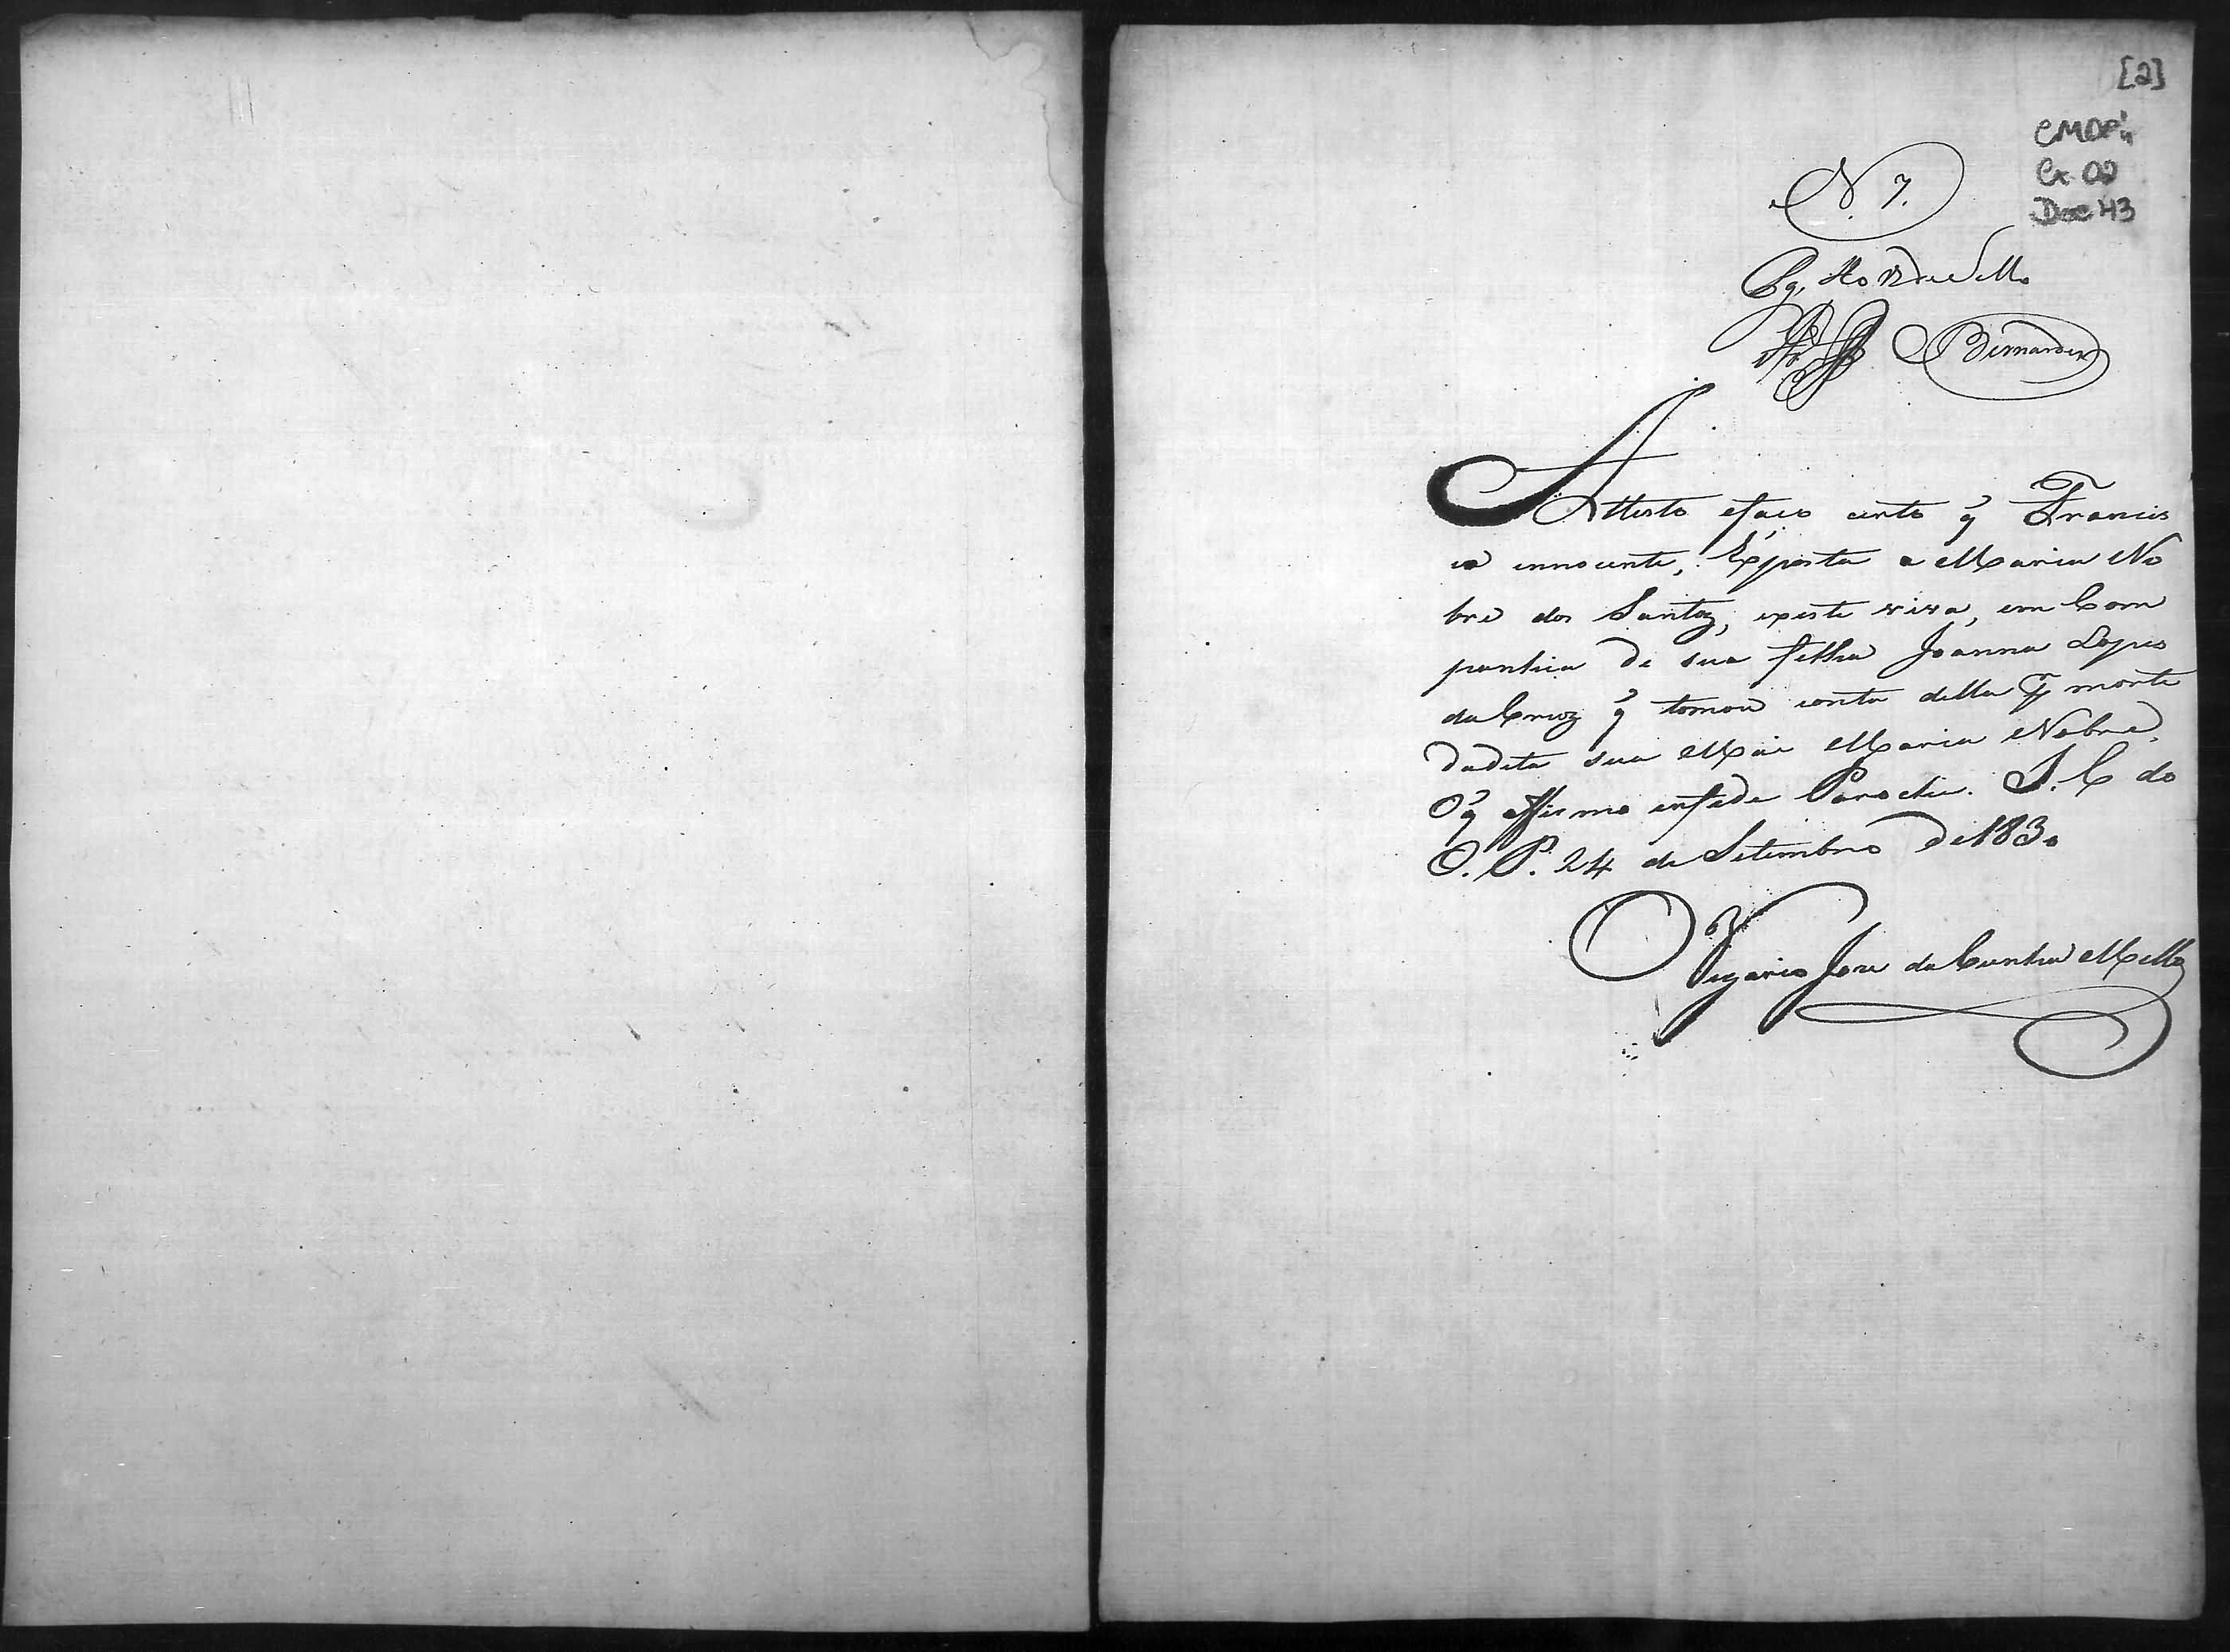 [2]
CMOP
Cx 02
Doc 43
N. 7.
Pg.
Bernardes
Attesto efaco certo q̃ Francis
ca innocente, Exposta a Maria No
bre dos Santoz, existe viva, em Com
panhia de sua filha Joanna Lopes
da Cruz q̃ tomou conta della p̃ morte
dadita sua Mai Maria Nobre.
O q̃ affirmo enfede Parocho. I. C do
O. P. 24 de Setembro de 1830
O Vigario Joze da Cunha Mello